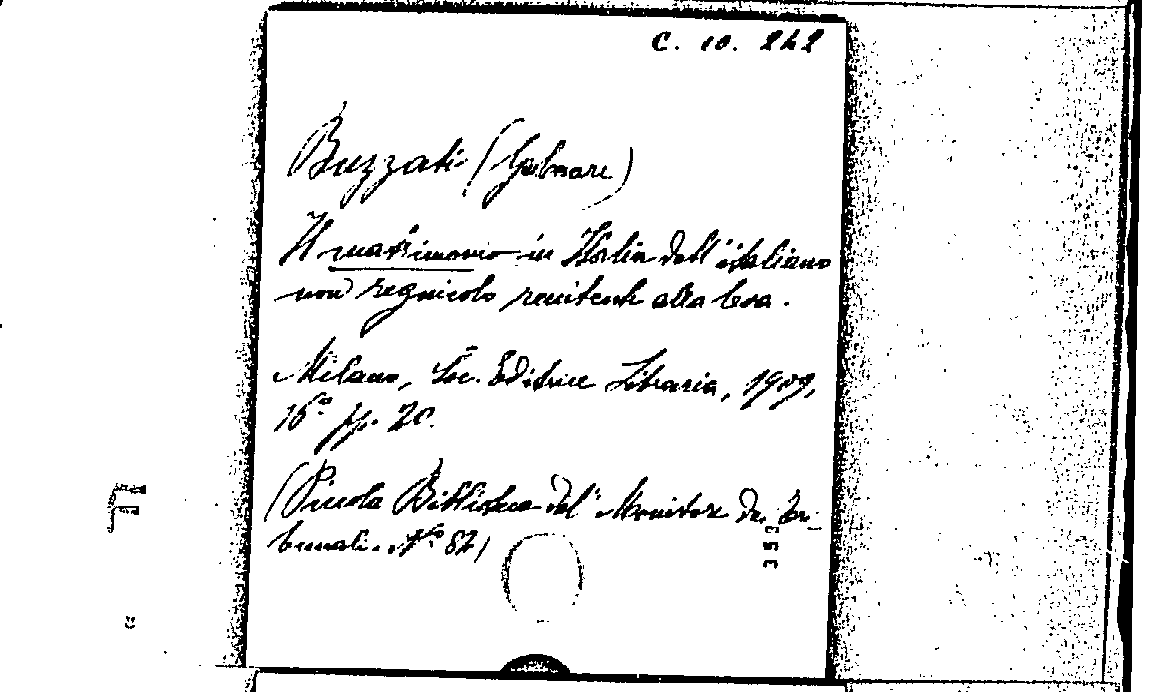 C. 10. 242
Buzzati (Giulio Cesare)
Il matrimonio in Italia dell'italiano
non regnicolo renitente alla leva.
Milano, Soc. Editrice Libraria, 1909,
16° pp. 20.
(Piccola Biblioteca del "Monitore dei Tri-
bunali". N° 82)
353
F